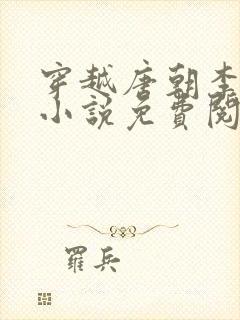 穿越唐朝李
小說免費閱
羅兵